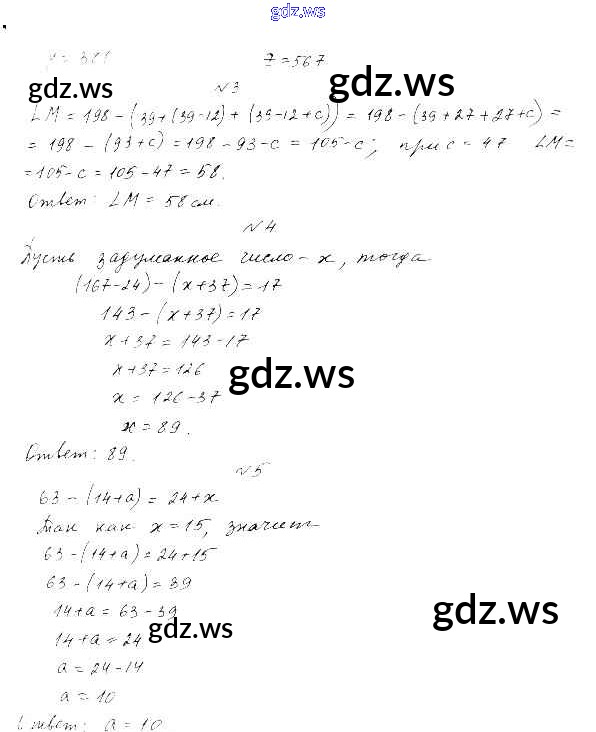 gdz.ws
z = 567
gdz.ws
gdz.ws
№3
LM = 198 - (39 + (39-12) + (39-12+c)) = 198 - (39+27+27+c) =
= 198 - (93+c) = 198 - 93 - c = 105 - c; при c = 47 LM =
= 105 - c = 105 - 47 = 58.
Ответ: LM = 58 см.
№4
Пусть задуманное число - x, тогда
(167-24) - (x+37) = 17
143 - (x+37) = 17
x+37 = 143-17
x+37 = 126
gdz.ws
x = 126-37
x = 89.
Ответ: 89.
№5
63 - (14+a) = 24+x
Так как x = 15, значит
63 - (14+a) = 24+15
63 - (14+a) = 39
14+a = 63-39
gdz.ws
14+a = 24
gdz.ws
a = 24-14
a = 10
Ответ: a = 10